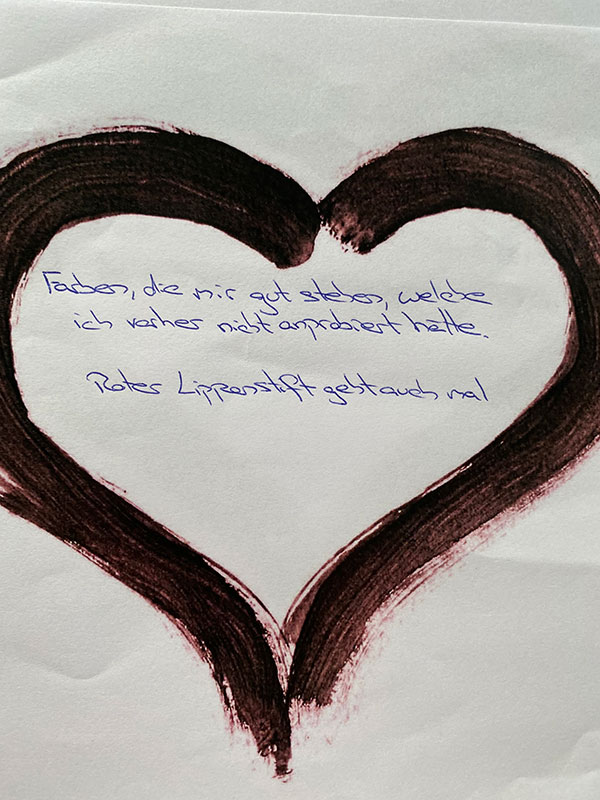 Farben, die mir gut stehen, welche
ich vorher nicht anprobiert hätte.
Roter Lippenstift geht auch mal